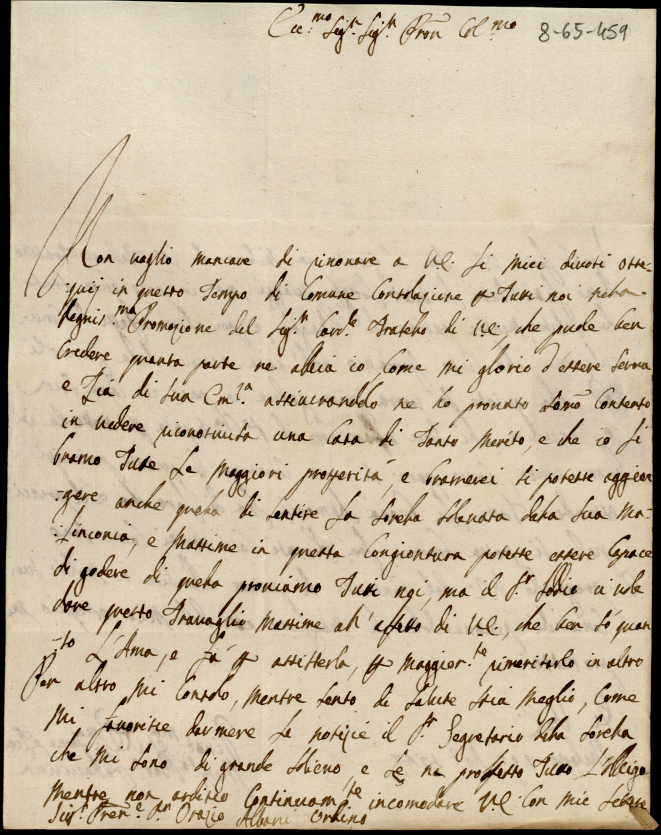 Ecc:mo Sig:r Sig:r Pron Col:mo
8-65-459
Non voglio mancare di rinovare a V.E. li miei divoti osse-
-quij in questo Tempo di Comune Consolazione p Tutti noi nella
degnis:ma Promozione del Sig:r Card:le Fratello di V.E., che puole ben
Credere quanta parte ne abbia io Come mi glorio d'essere Serva
e Zia di sua Em:za assicurandolo ne ho provato Somo Contento
in vedere riconosciuta una Casa di Tanto Merito, e che io li
bramo Tutte Le Maggiori prosperità, e bramerei si potesse aggion
-gere anche quella di sentire La Sorella Solevata dalla Sua Ma-
-linconia, e Massime in questa Congiontura potesse essere Capace
di godere di quella proviamo Tutti noi, ma il Sr Iddio vi vole
dare questo Travaglio Massime all' affetto di V.E., che ben sò quan
-to L'Ama, e Fà p assisterla, p maggior:te rimeritarlo in altro
Per altro Mi Consolo, Mentre Sento di Salute Stia Meglio, Come
Mi Favorisce darmene Le notizie il Sr Segretario della Sorella
che Mi Sono di grande Solievo e Le ne professo Tutto L'obligo
Mentre non ardisco Continuam:te incomodare V.E. Con Mie Lettere
Sig:r Pren:e Dn Orazio Albani Urbino